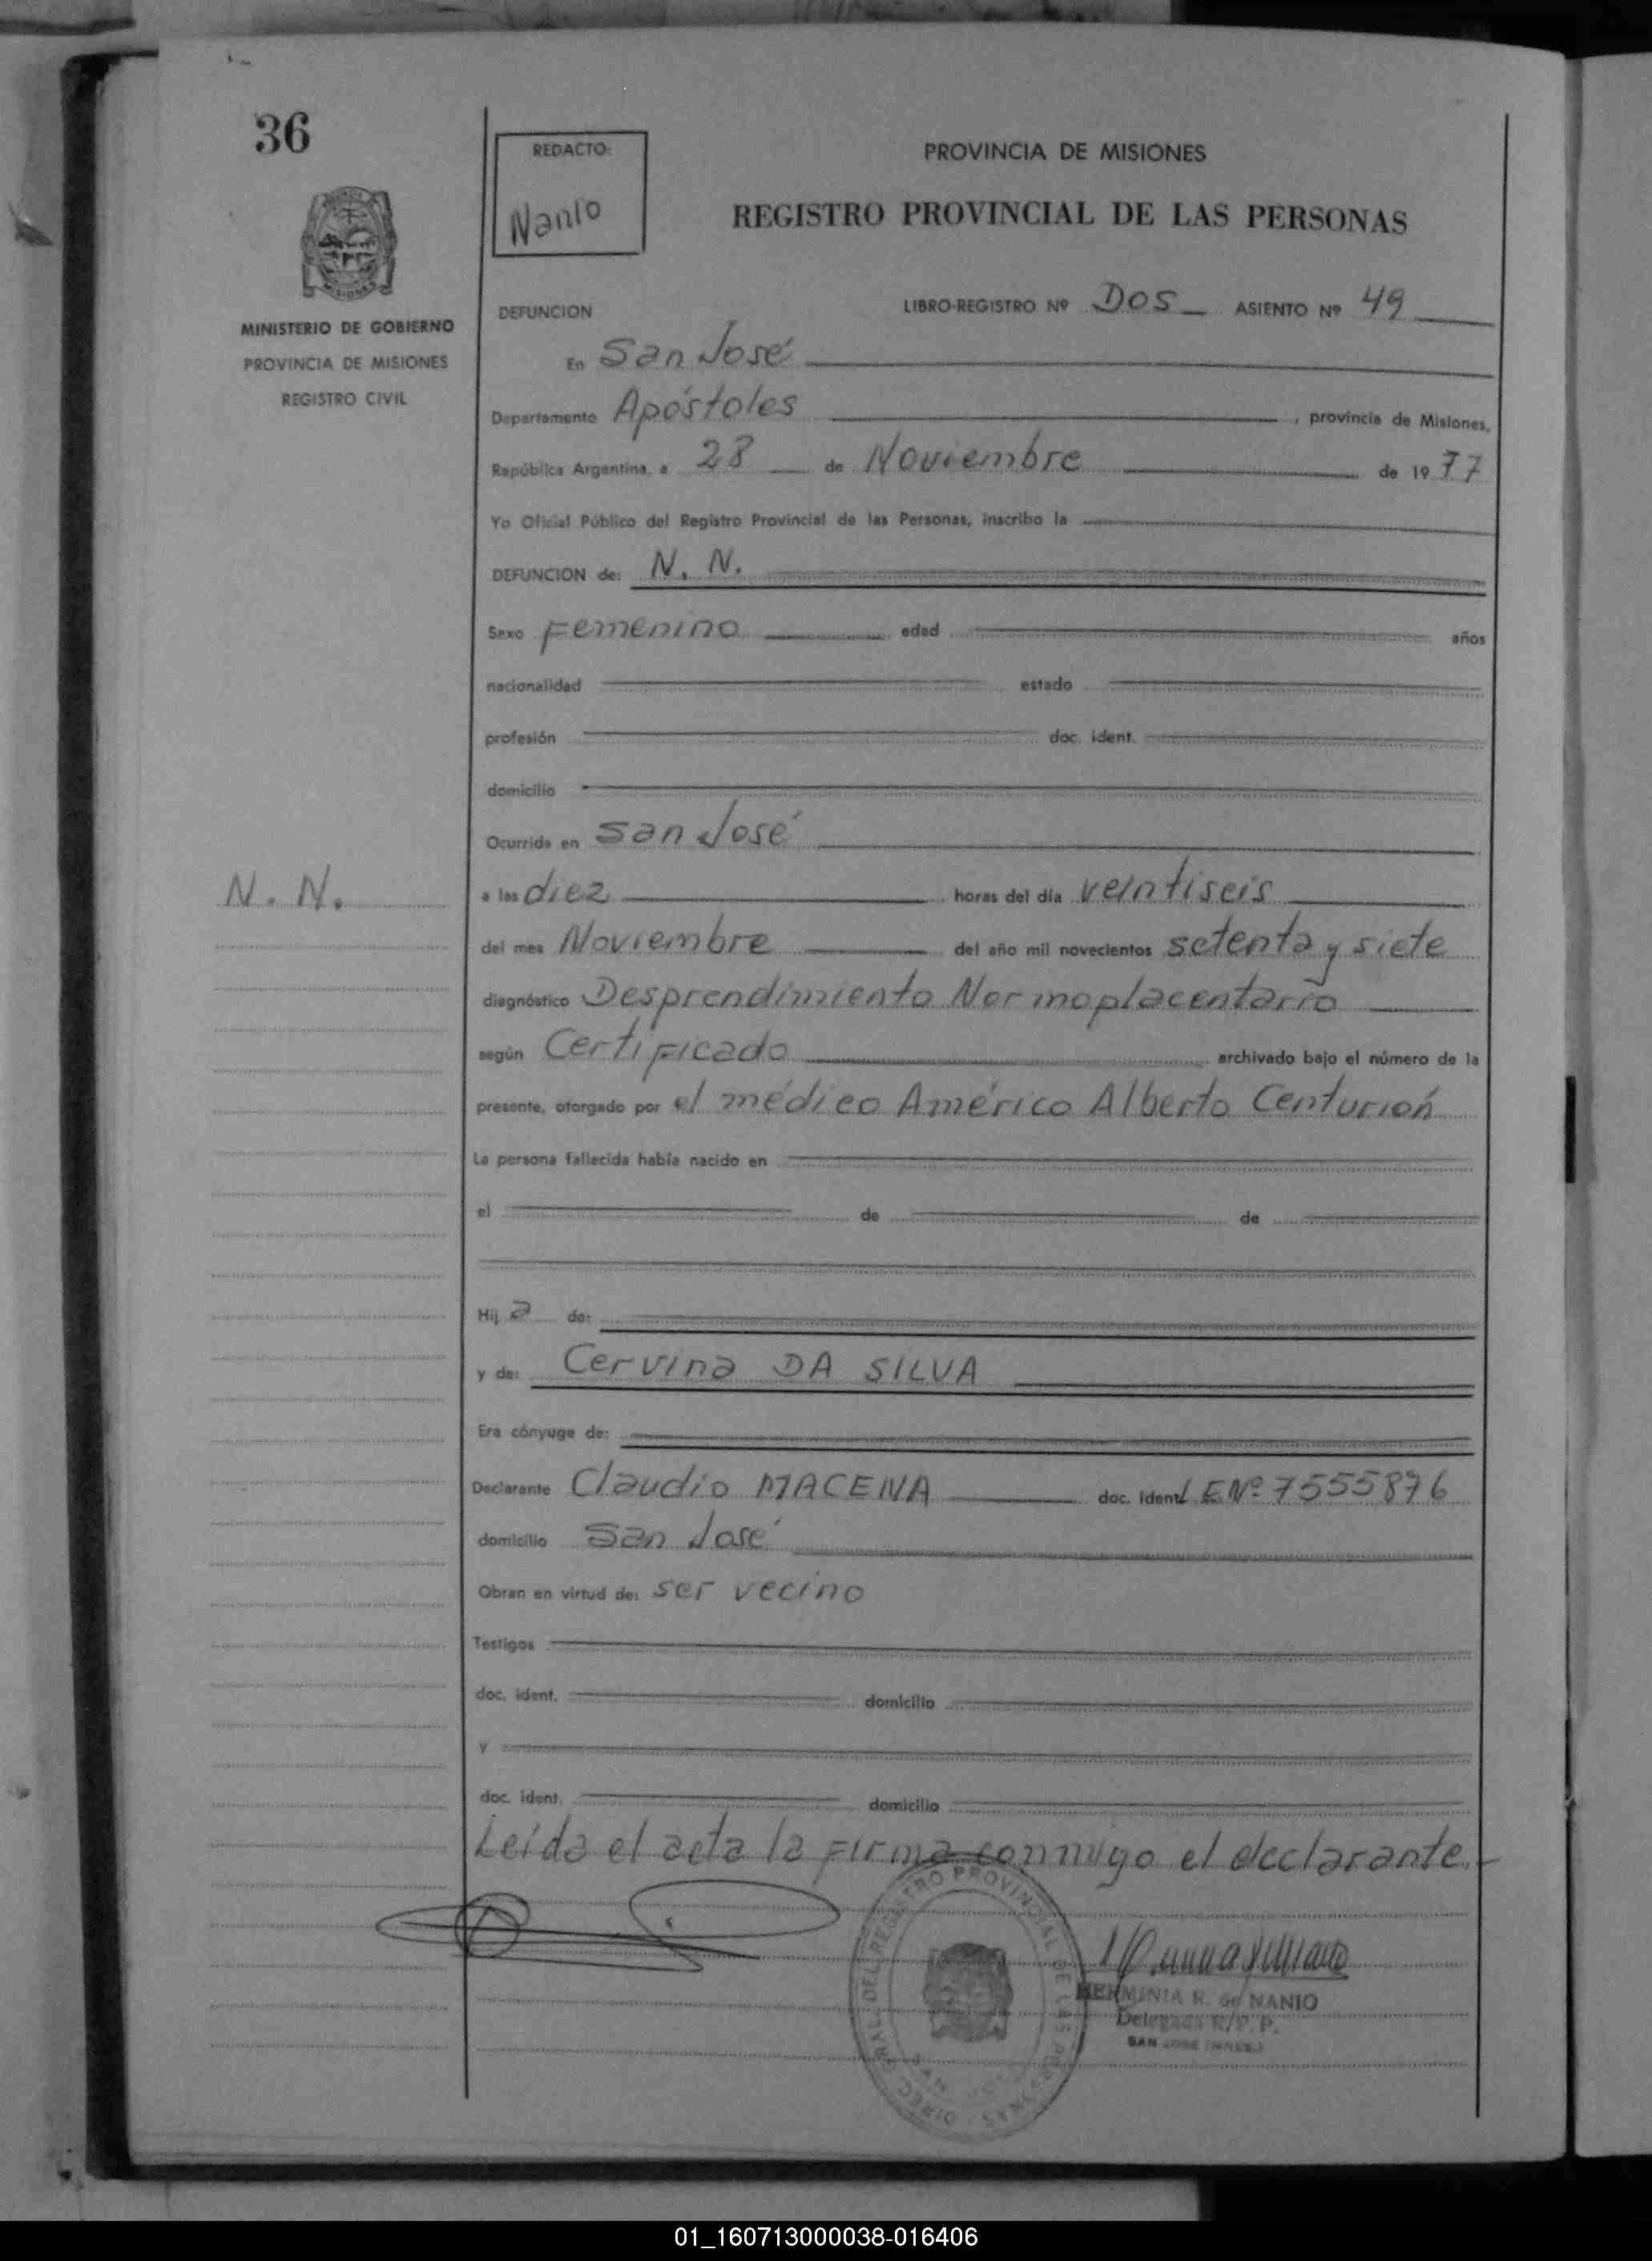 36
REDACTO:
Nanio
PROVINCIA DE MISIONES
REGISTRO PROVINCIAL DE LAS PERSONAS
MISIONES
MINISTERIO DE GOBIERNO
PROVINCIA DE MISIONES
REGISTRO CIVIL
DEFUNCION LIBRO-REGISTRO Nº DOS ASIENTO Nº 49
En San José
Departamento Apóstoles, provincia de Misiones,
República Argentina, a 28 de Noviembre de 1977
Yo Oficial Público del Registro Provincial de las Personas, inscribo la
DEFUNCION de: N. N.
Sexo Femenino edad años
nacionalidad estado
profesión doc. ident.
domicilio
Ocurrida en San José
N. N.
a las diez horas del día veintiseis
del mes Noviembre del año mil novecientos setenta y siete
diagnóstico Desprendimiento Normoplacentario
según Certificado archivado bajo el número de la
presente, otorgado por el médico Américo Alberto Centurión
La persona fallecida había nacido en
el de de
Hija de:
y de: Cervina DA SILVA
Era cónyuge de:
Declarante Claudio MACENA doc. ident. L E Nº 7555876
domicilio San José
Obran en virtud de: ser vecino
Testigos
doc. ident. domicilio
y
doc. ident. domicilio
Leída el acta la firma conmigo el declarante.-
DIREC. GRAL. DEL REGISTRO PROVINCIAL DE LAS PERSONAS
HERMINIA R. de NANIO
Delegada R. P. P.
SAN JOSE (MNES.)
01_160713000038-016406